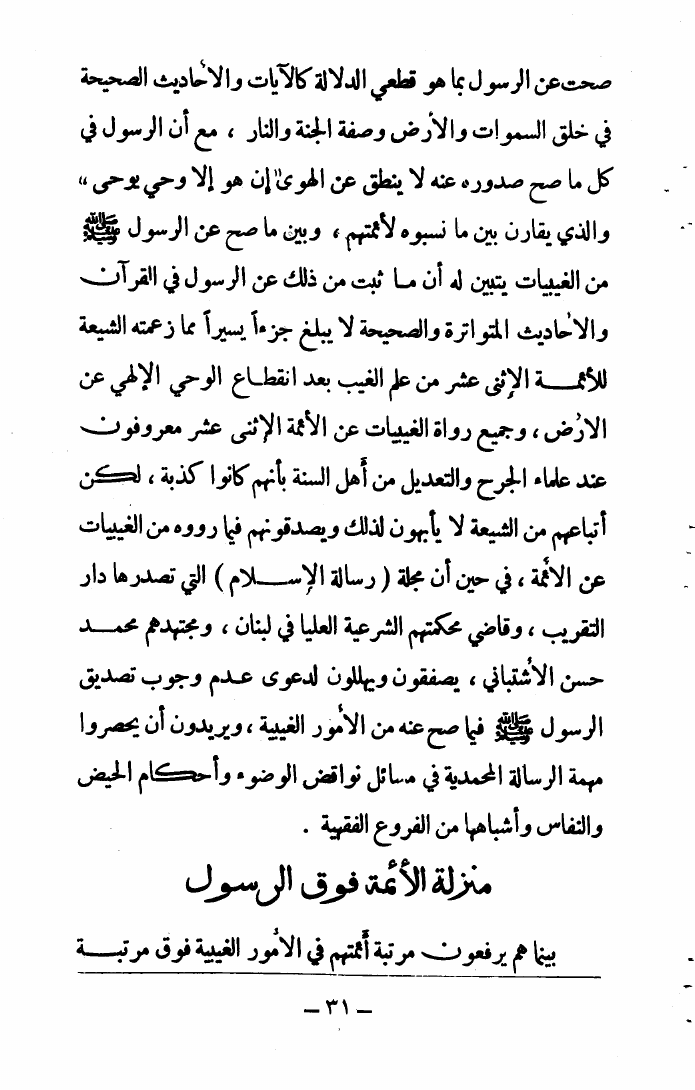 صحت عن الرسول بما هو قطعي الدلالة كالآيات والأحاديث الصحيحة
في خلق السموات والأرض وصفة الجنة والنار ، مع أن الرسول في
كل ما صح صدوره عنه لا ينطق عن الهوى " إن هو إلا وحي يوحى "
والذي يقارن بين ما نسبوه لأئمتهم ، وبين ما صح عن الرسول ﷺ
من الغيبيات يتبين له أن مـا ثبت من ذلك عن الرسول في القرآن
والأحاديث المتواترة والصحيحة لا يبلغ جزءاً يسيراً مما زعمته الشيعة
للأئمــة الإثنى عشر من علم الغيب بعد انقطـاع الوحي الإلهي عن
الأرض ، وجميع رواة الغيبيات عن الأئمة الإثنى عشر معروفون
عند علماء الجرح والتعديل من أهل السنة بأنهم كانوا كذبة ، لكن
أتباعهم من الشيعة لا يأبهون لذلك ويصدقونهم فيما رووه من الغيبيات
عن الأئمة ، في حين أن مجلة ( رسالة الإســلام ) التي تصدرها دار
التقريب ، وقاضي محكمتهم الشرعية العليا في لبنان ، ومجتهدهم محمــد
حسن الأشتباني ، يصفقون ويهللون لدعوى عـدم وجوب تصديق
الرسول ﷺ فيما صح عنه من الأمور الغيبية ، ويريدون أن يحصروا
مهمة الرسالة المحمدية في مسائل نواقض الوضوء وأحكام الحيض
والنفاس وأشباهها من الفروع الفقهية .
منزلة الأئمة فوق الرسول
بينما هم يرفعون مرتبة أئمتهم في الأمور الغيبية فوق مرتبــة
– ٣١ –